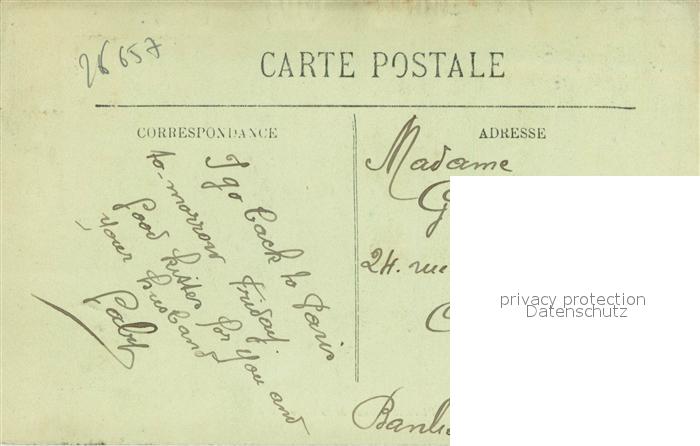 26657
CARTE POSTALE
CORRESPONDANCE
ADRESSE
I go back to Paris
to-morrow Friday.
Good kisses for you and
your husband
Gaby
Madame
G
24. rue
privacy protection
Datenschutz